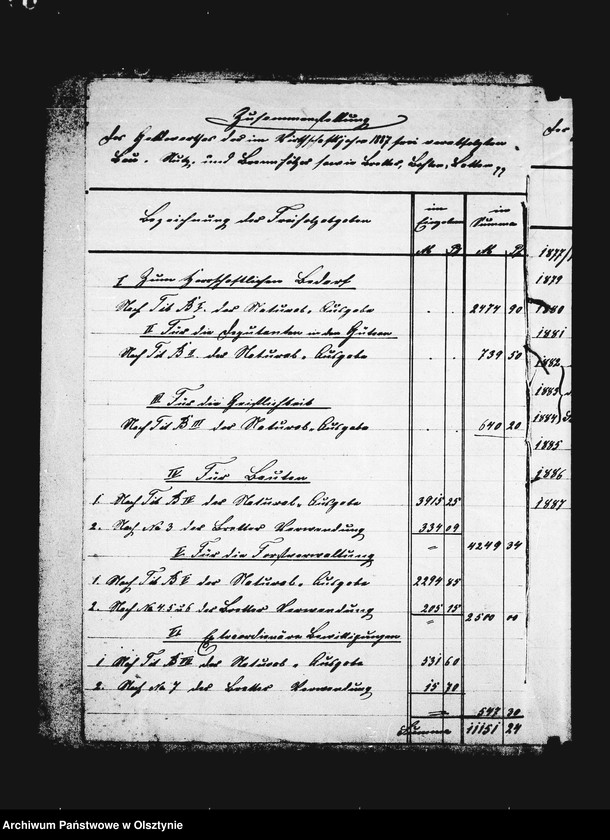 Zusammenstellung
des Geldwerthes des im Wirthschaftsjahre 1887 frei verabfolgten
Bau-, Nutz- und Brennholzes sowie Bretter, Bohlen, Latten pp
Bezeichnung der Freiholzabgaben
im Einzelnen
in Summa
M Pf M Pf
I Zum herrschaftlichen Bedarf
Nach Tit B I. der Natural-Ausgabe . . 2474 90
II Für die Deputanten in den Gütern
Nach Tit B II. der Natural-Ausgabe . . 739 50
III Für die Geistlichkeit
Nach Tit B III der Natural-Ausgabe . . 640 20
IV Für Bauten
1. Nach Tit B IV der Natural-Ausgabe 3915 25
2. Nach No 3 der Bretter Verwendung 334 09
" 4249 34
V. Für die Forstverwaltung
1. Nach Tit B V der Natural-Ausgabe 2294 85
2. Nach No 4. 5 u 6 der Bretter Verwendung 205 15
" 2500 00
VI Extraordinäre Bewilligungen
1 Nach Tit B VI der Natural-Ausgabe 531 60
2. Nach No 7 der Bretter Verwendung 15 70
547 30
Summa 11151 24
1877/
1879
1880
1881
1882
1883
1884
1885
1886
1887
Archiwum Państwowe w Olsztynie